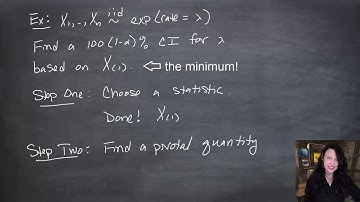 Ex: X₁, .., Xₙ iid ~ exp(rate = λ)
Find a 100(1-α)% CI for λ
based on X₍₁₎. ⇦ the minimum!
Step One: Choose a statistic.
Done! X₍₁₎
Step Two: Find a pivotal quantity